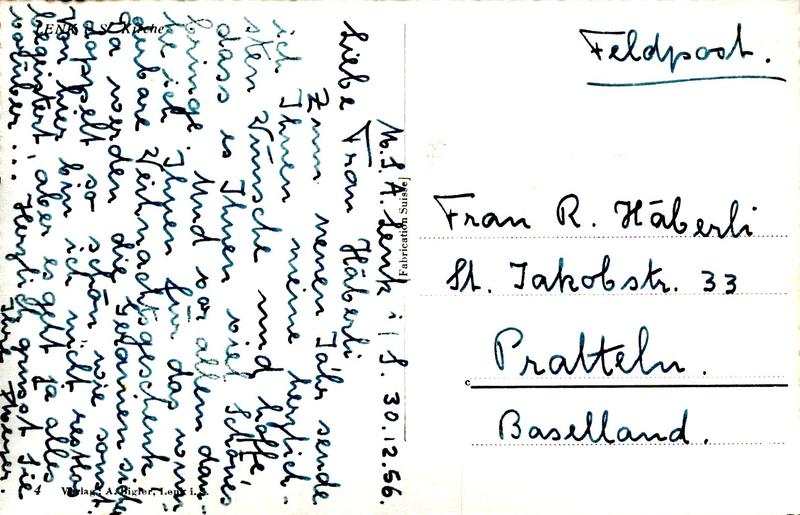 LENK i. S. Kirche
M.S.A. Lenk i / S. 30.12.56.
Liebe Frau Häberli
Zum neuen Jahr sende
ich Ihnen meine herzlich-
sten Wünsche und hoffe
dass es Ihnen viel Schönes
bringe. Und vor allem dan-
ke ich Ihnen für das wun-
derbare Weihnachtsgeschenk
Da werden die Gitarren sicher
doppelt so schön wie sonst.
Von hier bin ich nicht restlos
begeistert, aber es geht ja alles
vorüber... Herzlich grüsst Sie
Ihre
4 Verlag: A. Bigler, Lenk i. S.
[Fabrication Suisse]
Feldpost.
Frau R. Häberli
St. Jakobstr. 33
Pratteln.
Baselland.